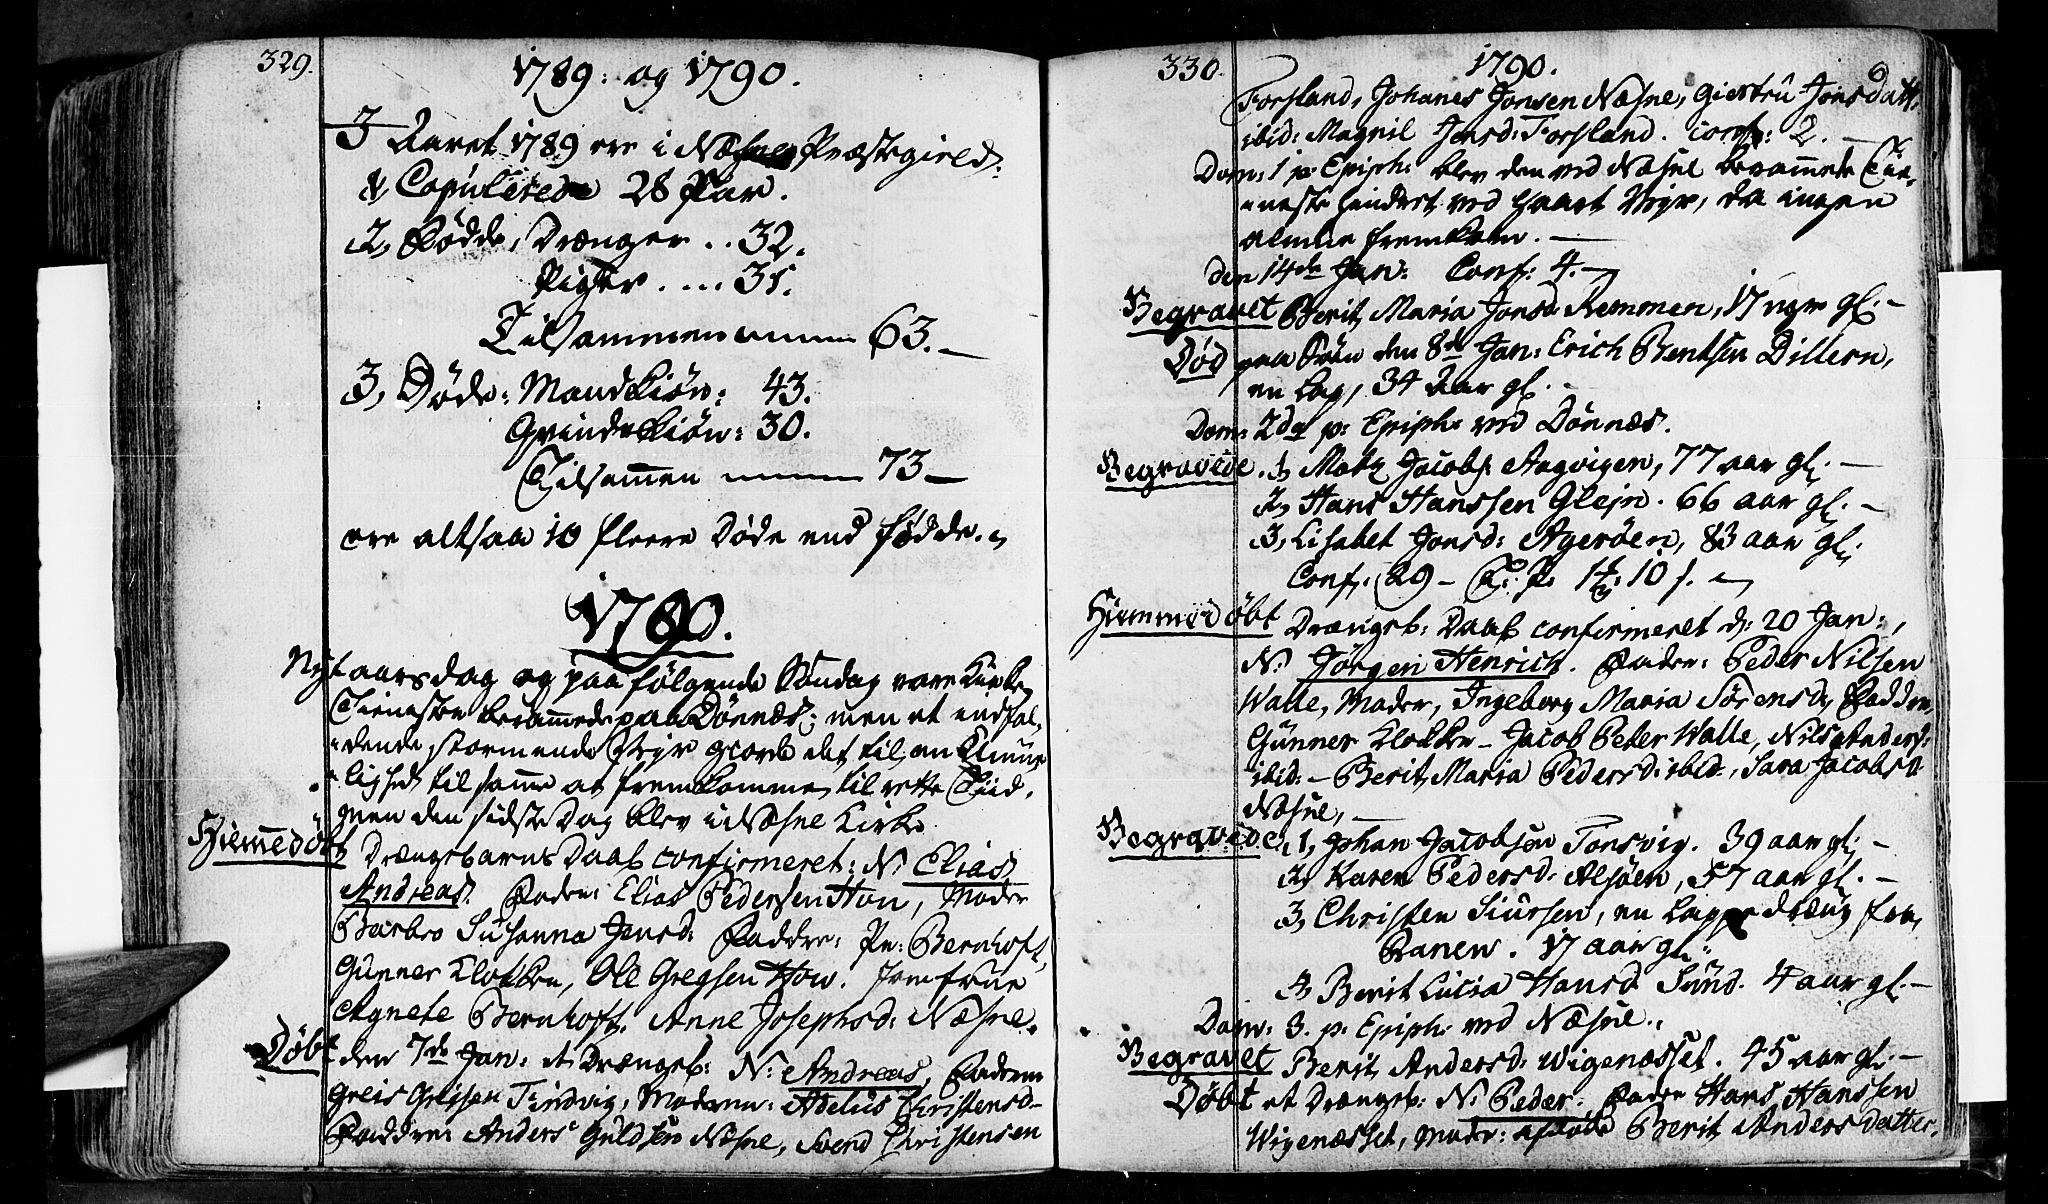 329.
1789: og 1790.
I Aaret 1789 ere i Næsne Præstegield:
1, Copulerede 28 Par.
2, Fødde, Drænger .. 32.
Piger .... 31.
Tilsammen 63.
3, Døde: Mandkiøn: 43.
Qvindekiøn: 30.
Tilsamen 73
ere altsaa 10 fleere Døde end fødde.
1790.
Nytaarsdag og paa følgende Søndag vare Kirke
Tienesten berammede paa Dønnæs; men et indfal-
dende stormende Veyr giorde det til en Umue-
lighed til samme at fremkomme til rette Tiid,
men den sidste Dag blev i Næsne Kirke
Hiemmedøbt Drængebarns Daab confirmeret: N: Elias
Andreas. Fader: Elias Pedersen Hou, Moder
Barbro Susanna Jensd: Faddre: Pr: Bernhoft,
Gunner Klokker, Ole Gregsen How. Jomfrue
Agnete Bernhoft, Anne Josephsd: Næsne.
Døbt den 7de Jan: et Drængeb: N: Andreas, Faderen
Greis Greisen Tindvig, Moderen: Adelus Christensd
Faddre: Anders Guldsen Næsne, Svend Christensen
330.
1790.
Forsland, Johanes Jonsen Næsne, Giertru Jonsdatt.
ibid: Magnil Jensd: Forsland. Conf: 2.
Dom: 1 p: Epiph: blev den ved Næsne berammede Tie-
neste hindret ved haart Veyr, da ingen
almue fremkom.
den 14de Jan: Conf: 4.
Begravet Berit Maria Jonsd: Remmen, 17 uger gl.
Død paa Søen den 8de Jan: Erich Bentsen Dillern,
en Lap, 34 Aar gl.
Dom: 2da p: Epiph: ved Dønnæs.
Begravede. 1, Matz Jacobs. Aagvigen, 77 aar gl.
2, Hans Hanssen Glejn. 66 aar gl.
3, Lisabet Jonsd: Agerøen, 83 aar gl.
Conf: 29
Hiemmedøbt Drængeb: Daab confirmeret d: 20 Jan:,
N: Jørgen Henrich. Fader: Peder Nilsen
Walle, Moder, Ingeborg Maria Sørensd, Faddre,
Gunner Klokker - Jacob Peter Walle, Nils Anders:
ibid: - Berit Maria Pedersd: ibid:, Sara Jacobsd
Næsne,
Begravede 1, Johan Jacobsen Tonsvig. 39 aar gl.
2, Karen Pedersd. Alsøen, 57 aar gl.
3, Christen Siursen, en Lappe dræng fra
Ranen. 17 aar gl.
4, Berit Lucia Hansd. Sund. 4 aar gl.
Dom: 3. p: Epiph: ved Næsne.
Begravet Berit Andersd: Wigenæsset. 45 aar gl.
Døbt et Drængeb: N: Peder. Fader Hans Hanssen
Wigenæsset, Moder: afdøde Berit Andersdatter.